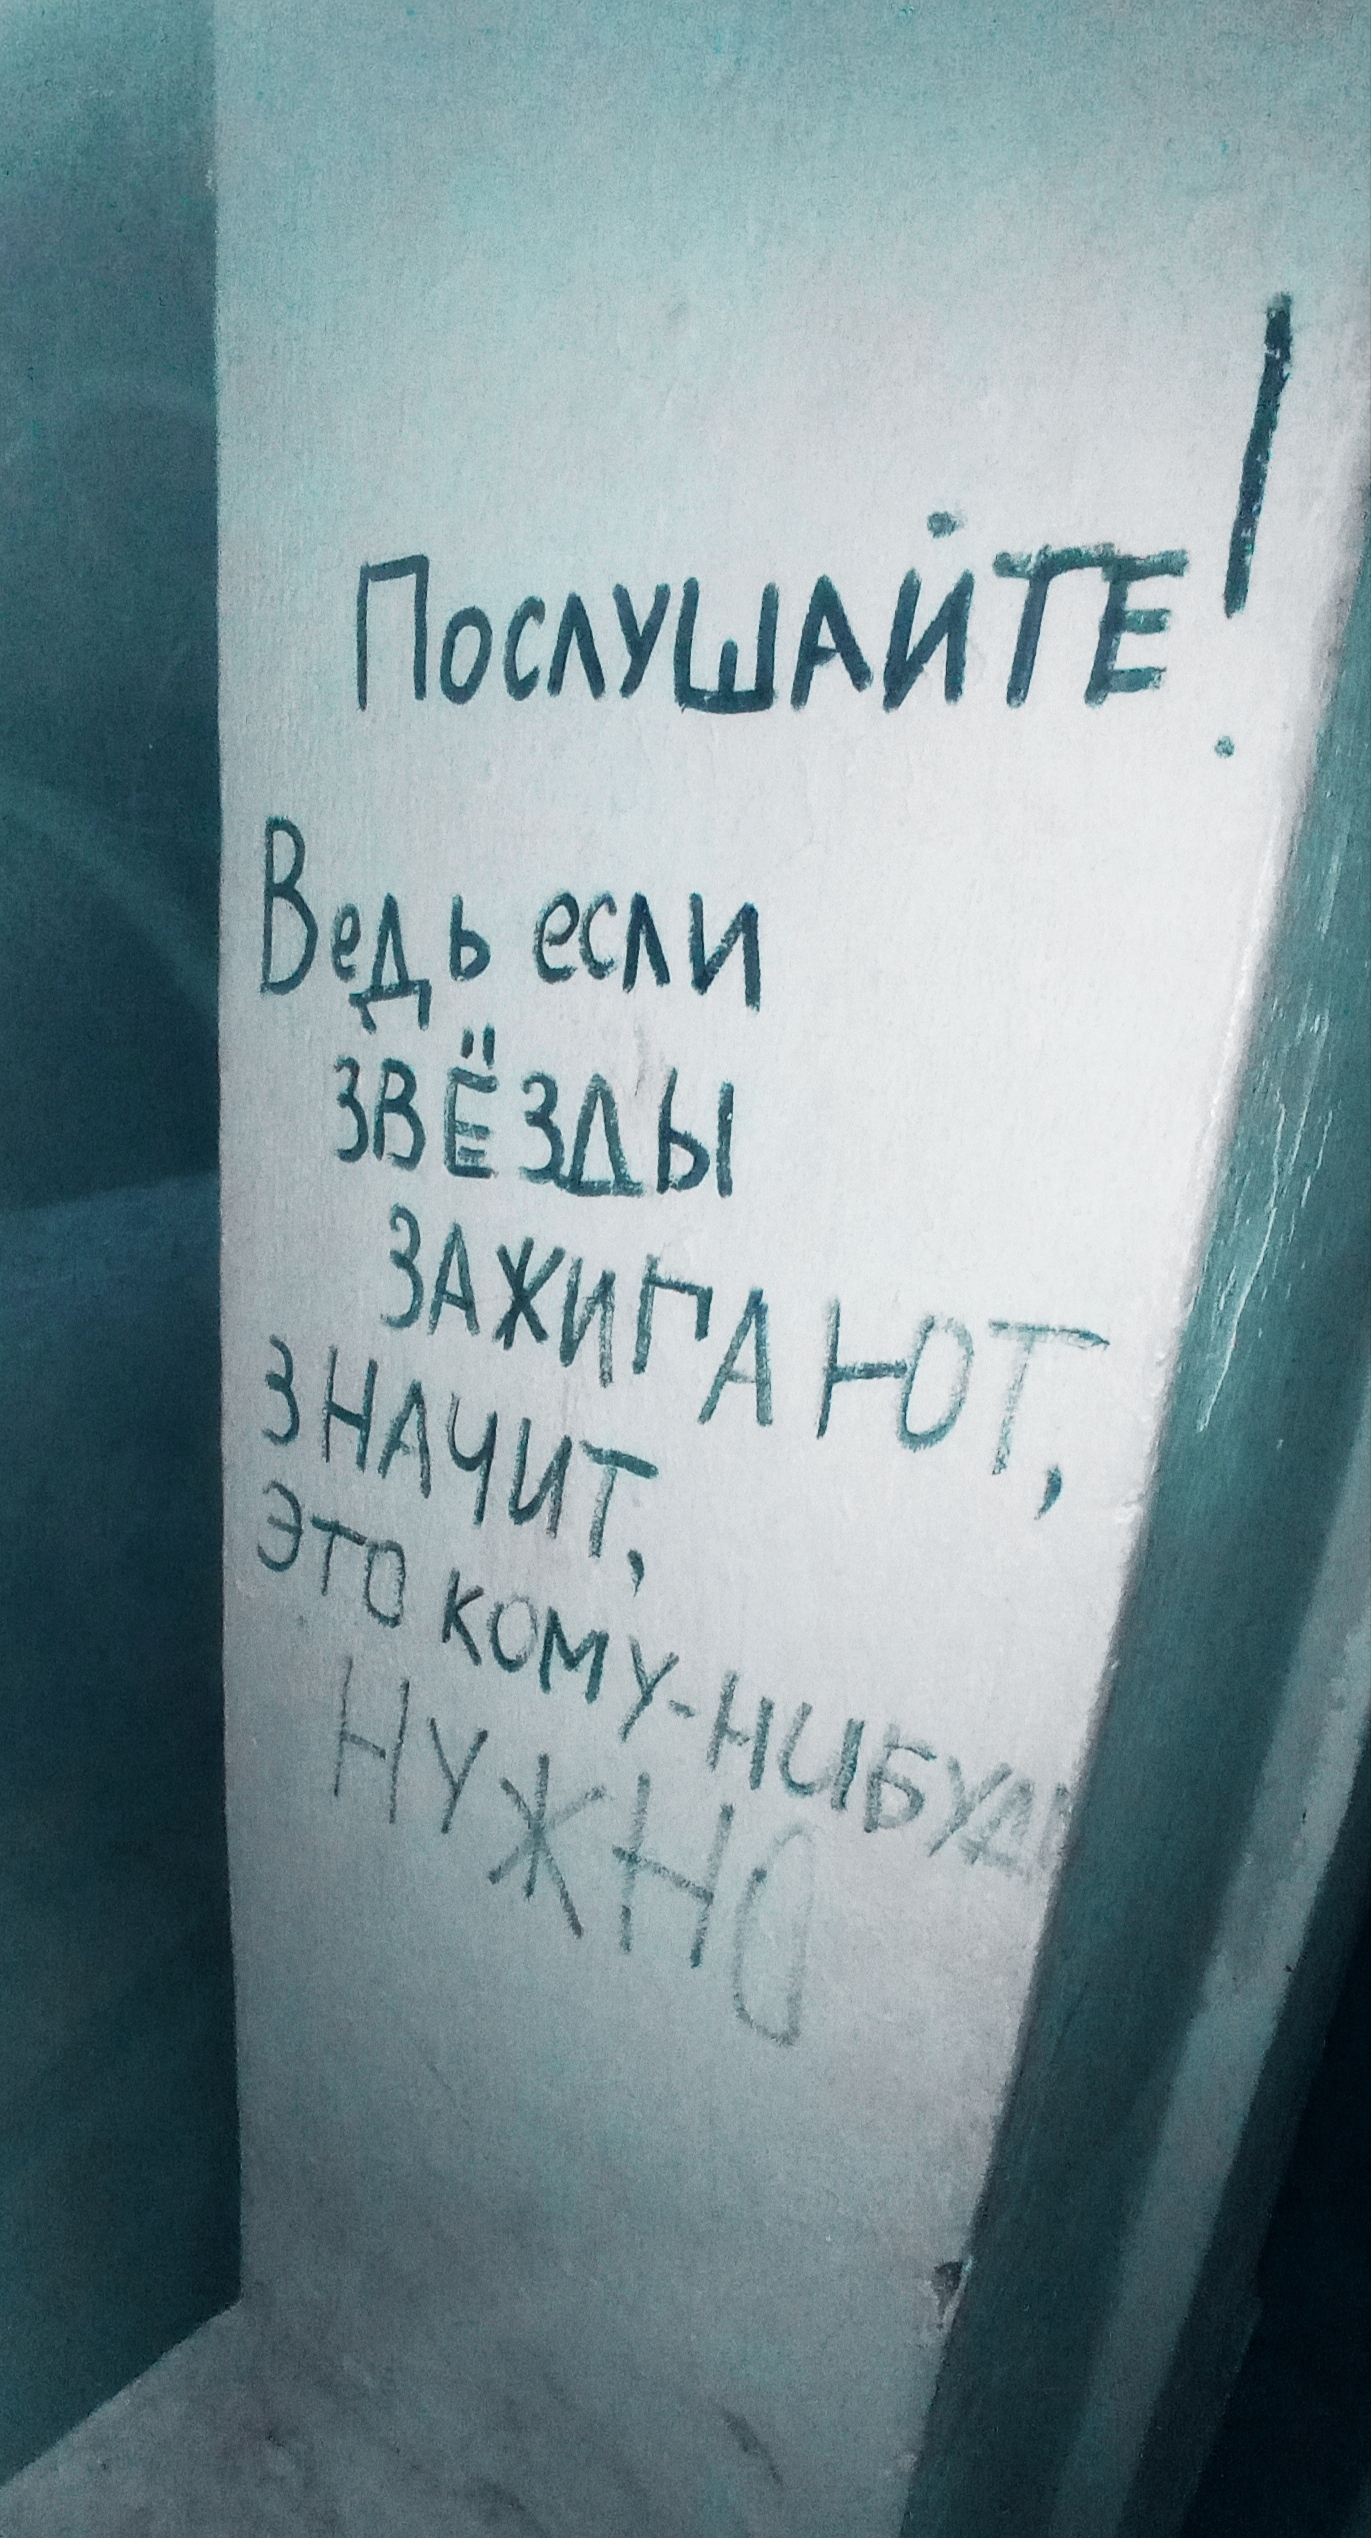 ПОСЛУШАЙТЕ!
Ведь если
ЗВЁЗДЫ
ЗАЖИГАЮТ,
ЗНАЧИТ,
ЭТО КОМУ-НИБУДЬ
НУЖНО